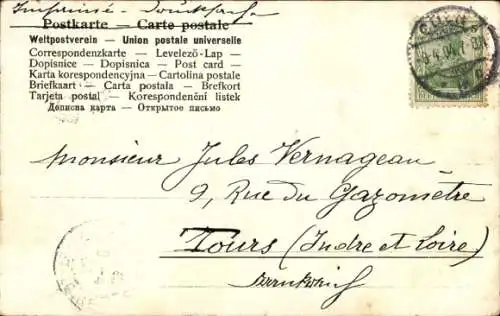 Imprimé - Drucksache
Postkarte — Carte postale
Weltpostverein — Union postale universelle
Correspondenzkarte — Levelező-Lap
Dopisnice — Dopisnica — Post card —
Karta korespondencyjna — Cartolina postale
Briefkaart — Carta postala — Brefkort
Tarjeta postal — Korespondenční listek
Дописна карта — Открытое письмо
Monsieur Jules Vernageau
9, Rue du Gazomètre
Tours (Indre et Loire)
Frankreich